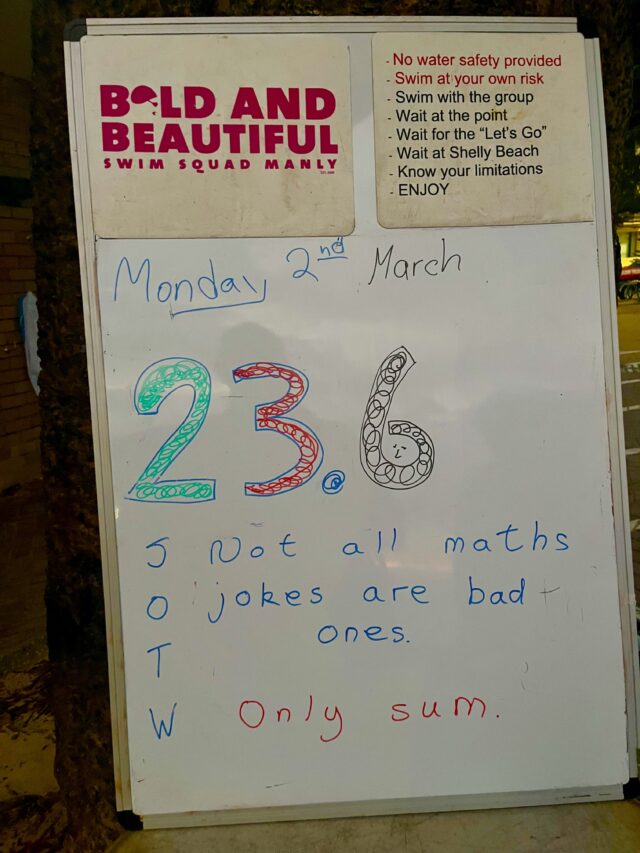 BOLD AND
BEAUTIFUL
SWIM SQUAD MANLY
- No water safety provided
- Swim at your own risk
- Swim with the group
- Wait at the point
- Wait for the “Let's Go”
- Wait at Shelly Beach
- Know your limitations
- ENJOY
Monday 2nd March
23.6
J Not all maths
O jokes are bad
T ones.
W Only sum.